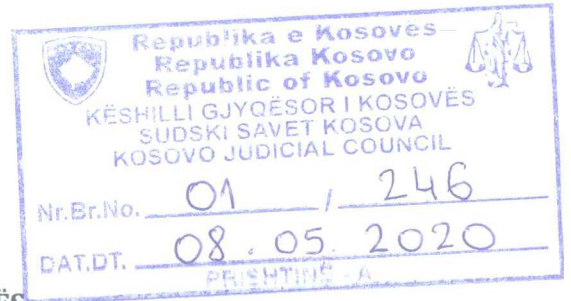 Republika e Kosovës
Republika Kosovo
Republic of Kosovo
KËSHILLI GJYQËSOR I KOSOVËS
SUDSKI SAVET KOSOVA
KOSOVO JUDICIAL COUNCIL
Nr.Br.No. 01 / 246
DAT.DT. 08. 05. 2020
PRISHTINË - A
ËS